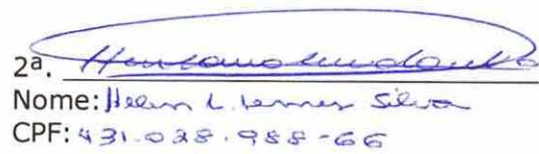 2ª.
Nome: Helen L. Lemes Silva
CPF: 431.028.988-66